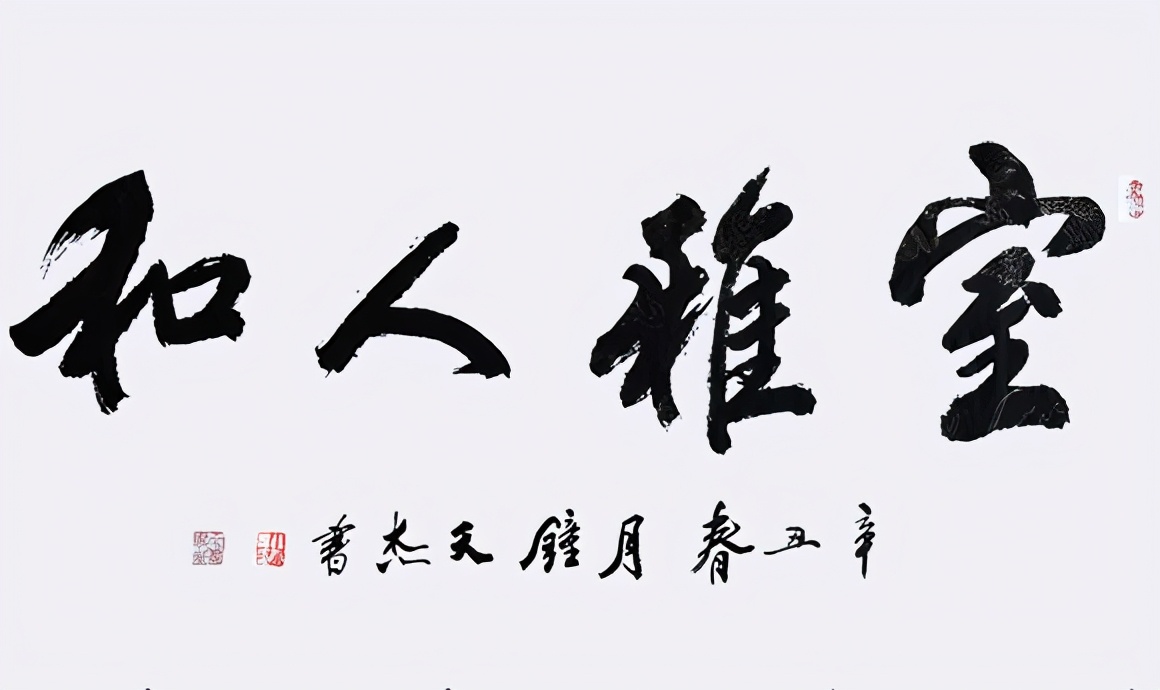 室雅人和
辛丑春月鐘天杰書